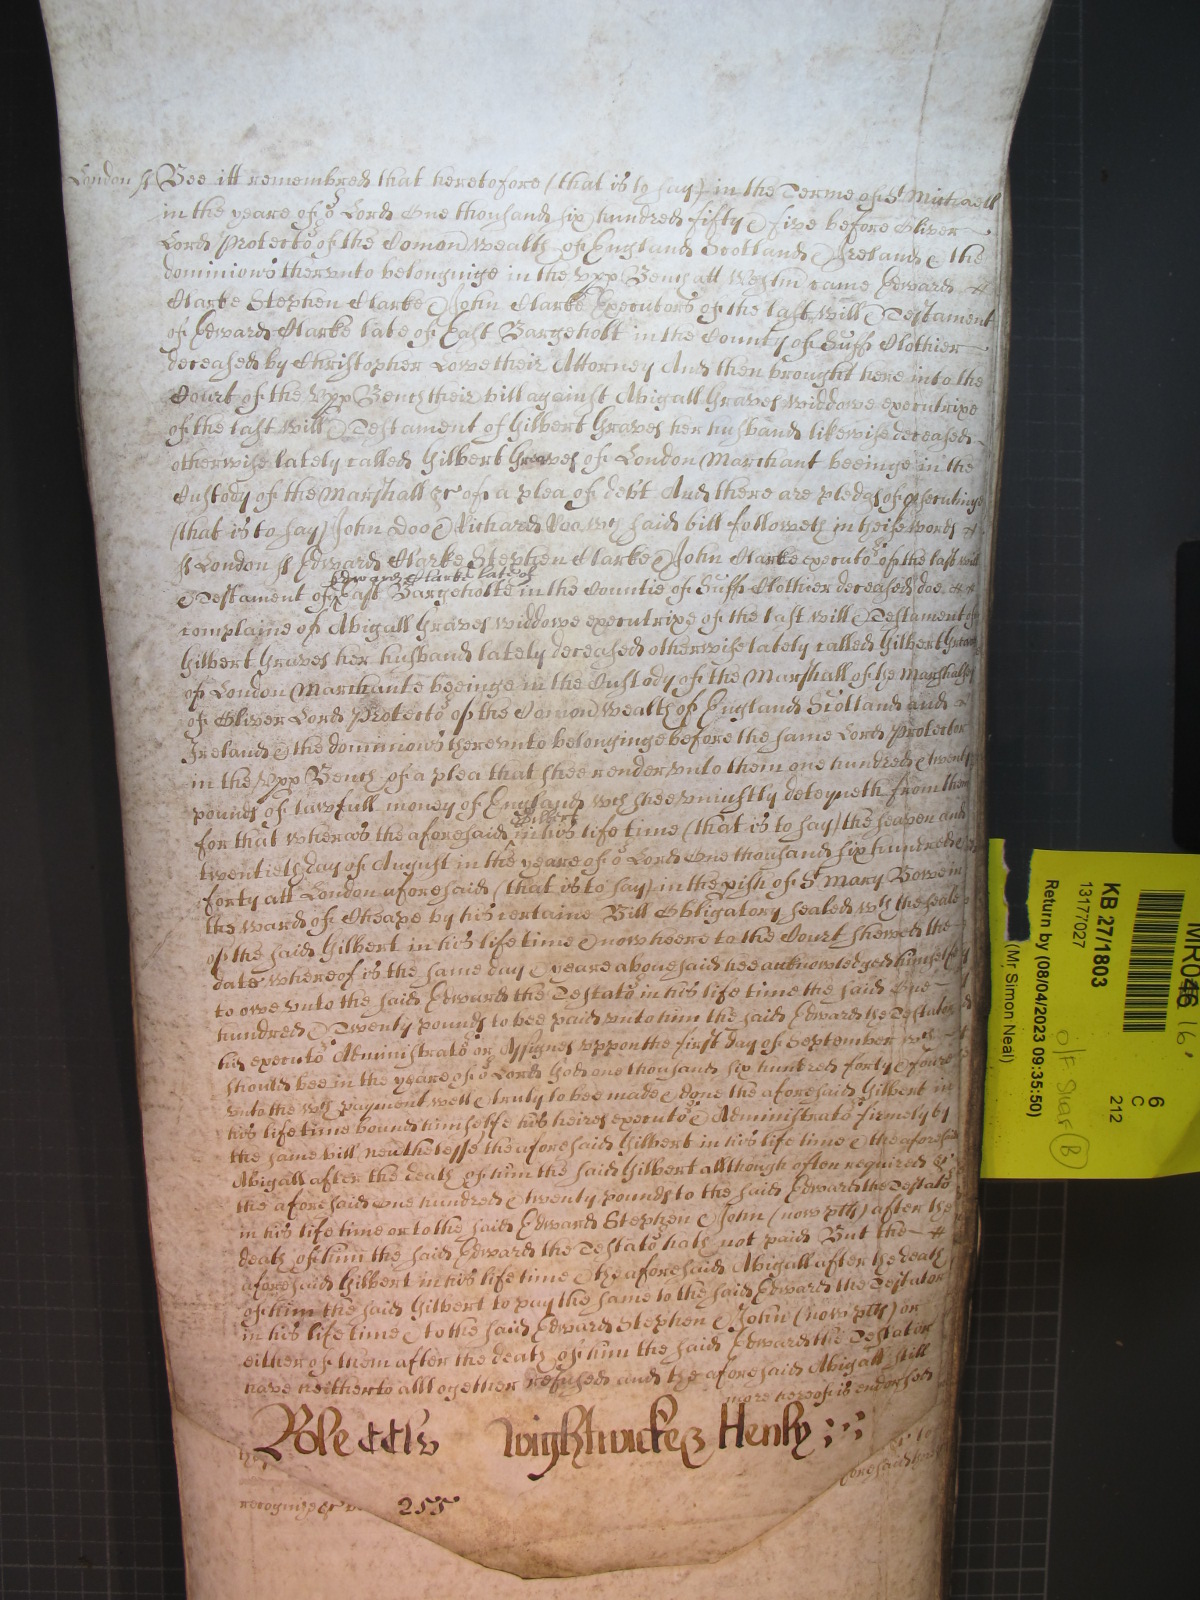 London ss Bee itt remembred that heretofore (that is to say) in the Terme of St Michaell
in the yeare of or Lord One thousand six hundred fifty & five before Oliver
Lord Protector of the Comon wealth of England Scotland & Ireland & the
dominions thervnto belonginge in the vpp Bench att Westm came Edward
Clarke Stephen Clarke & John Clarke Executors of the last will & Testament
of Edward Clarke late of East Bargeholt in the County of Suff Clothier
deceased by Christopher Lowe their Attorney And then brought here into the
Court of the vpp Bench their bill against Abigall Graves widdowe executrixe
of the last will & Testament of Gilbert Graves her husband likewise deceased
otherwise lately called Gilbert Graves of London Marchant beeinge in the
Custody of the Marshall &c of a plea of debt And there are pledgs of psecutinge
(that is to say) John Doo & Richard Roo wch said bill followeth in theise words
ss London ss Edward Clarke Stephen Clarke & John Clarke executors of the last will
Edward Clarke late of
& Testament of East Bargeholte in the Countie of Suff Clothier deceased doe
complaine of Abigall Graves widdowe executrixe of the last will & Testament of
Gilbert Graves her husband lately deceased otherwise lately called Gilbert Graves
of London Marchante beeinge in the Custody of the Marshall of the Marshalsey
of Oliver Lord Protector of the Comon wealth of England Scotland and
Ireland & the dominions therevnto belonginge before the same Lord Protector
in the vpp Bench of a plea that shee render vnto them one hundred & twenty
pounds of lawfull money of England wch shee vniustly deteyneth from them
Gilbert
for that wheras the aforesaid in his life time (that is to say) the seaven and
twentieth day of August in the yeare of or Lord One thousand six hundred &
forty att London aforesaid (that is to say) in the pish of St Mary Bowe in
the ward of Cheape by his certaine Bill Obligatory sealed wth the seale
of the said Gilbert in his life time & now heere to the Court shewed the
date whereof is the same day & yeare abovesaid hee acknowledged himselfe
to owe vnto the said Edward the Testator in his life time the said One
hundred & Twenty pounds to bee paid vnto him the said Edward the Testator
his executors Administrators or Assignes vppon the first day of September wch
should bee in the yeare of or Lord God one thousand six hundred forty & foure
vnto the wch payment well & truly to bee made & done the aforesaid Gilbert in
his life time bound himselfe his heires executors & Administrators firmely by
the same bill neuthelesse the aforesaid Gilbert in his life time & the aforesaid
Abigall after the death of him the said Gilbert allthough often required &c
the aforesaid One hundred & twenty pounds to the said Edward the Testator
in his life time or to the said Edward Stephen & John (now plts) after the
death of him the said Edward the Testator hath not paid But the
aforesaid Gilbert in his life time & the aforesaid Abigall after the death
of him the said Gilbert to pay the same to the said Edward the Testator
in his life time & to the said Edward Stephen & John (now plts) or
either of them after the death of him the said Edward the Testator
have heitherto alltogether refused and the aforesaid Abigall still
more hereof is endorsed
Role CClv Wightwicke Henly
foresaid
recognize
255
MR046
16
KB 27/1803
13177027
Return by (08/04/2023 09:35:50)
(Mr Simon Neal)
6
C
212
O/F
B